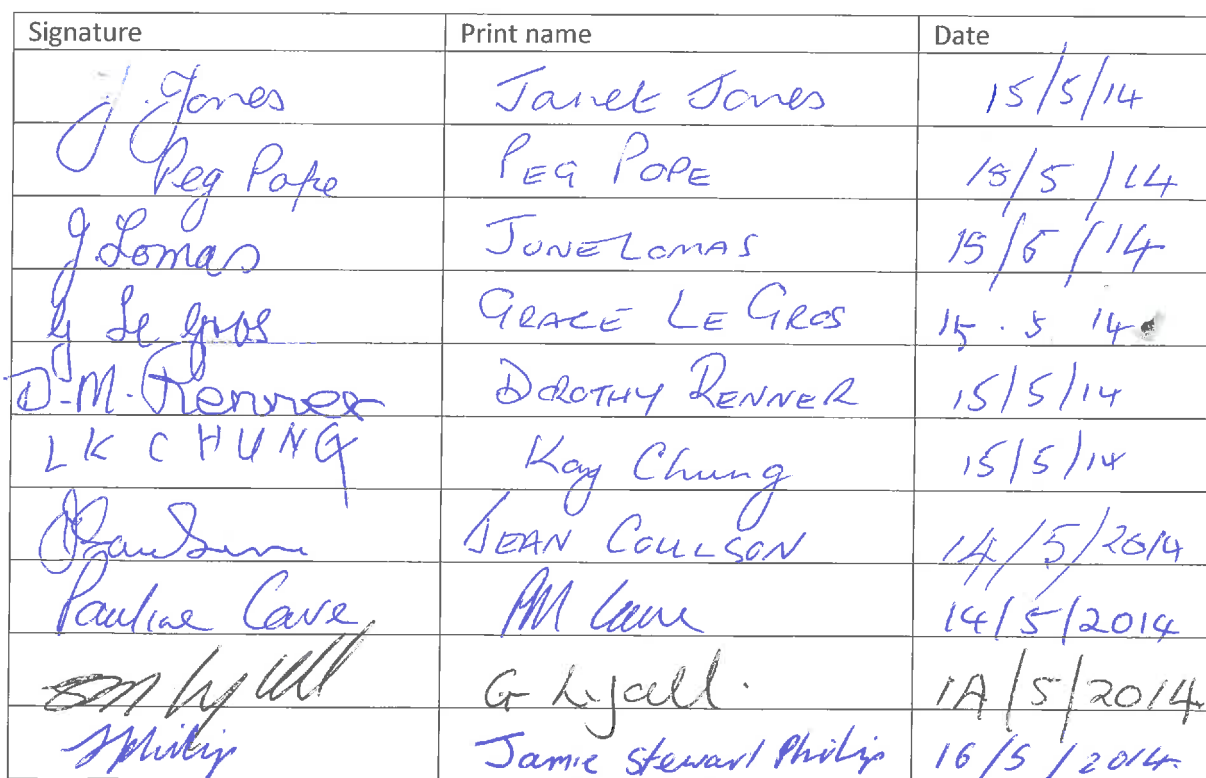 Signature Print name Date
J. Jones Janet Jones 15/5/14
Peg Pope PEG POPE 15/5/14
J Lomas JUNE LOMAS 15/5/14
G Le Gros GRACE LE GROS 15.5 14
D.M. Renner DOROTHY RENNER 15/5/14
LK CHUNG Kay Chung 15/5/14
JEAN COULSON 14/5/2014
Pauline Cave PM Cave 14/5/2014
Lyall G Lyall. 14/5/2014
JPhilip Jamie Stewart Philip 16/5/2014